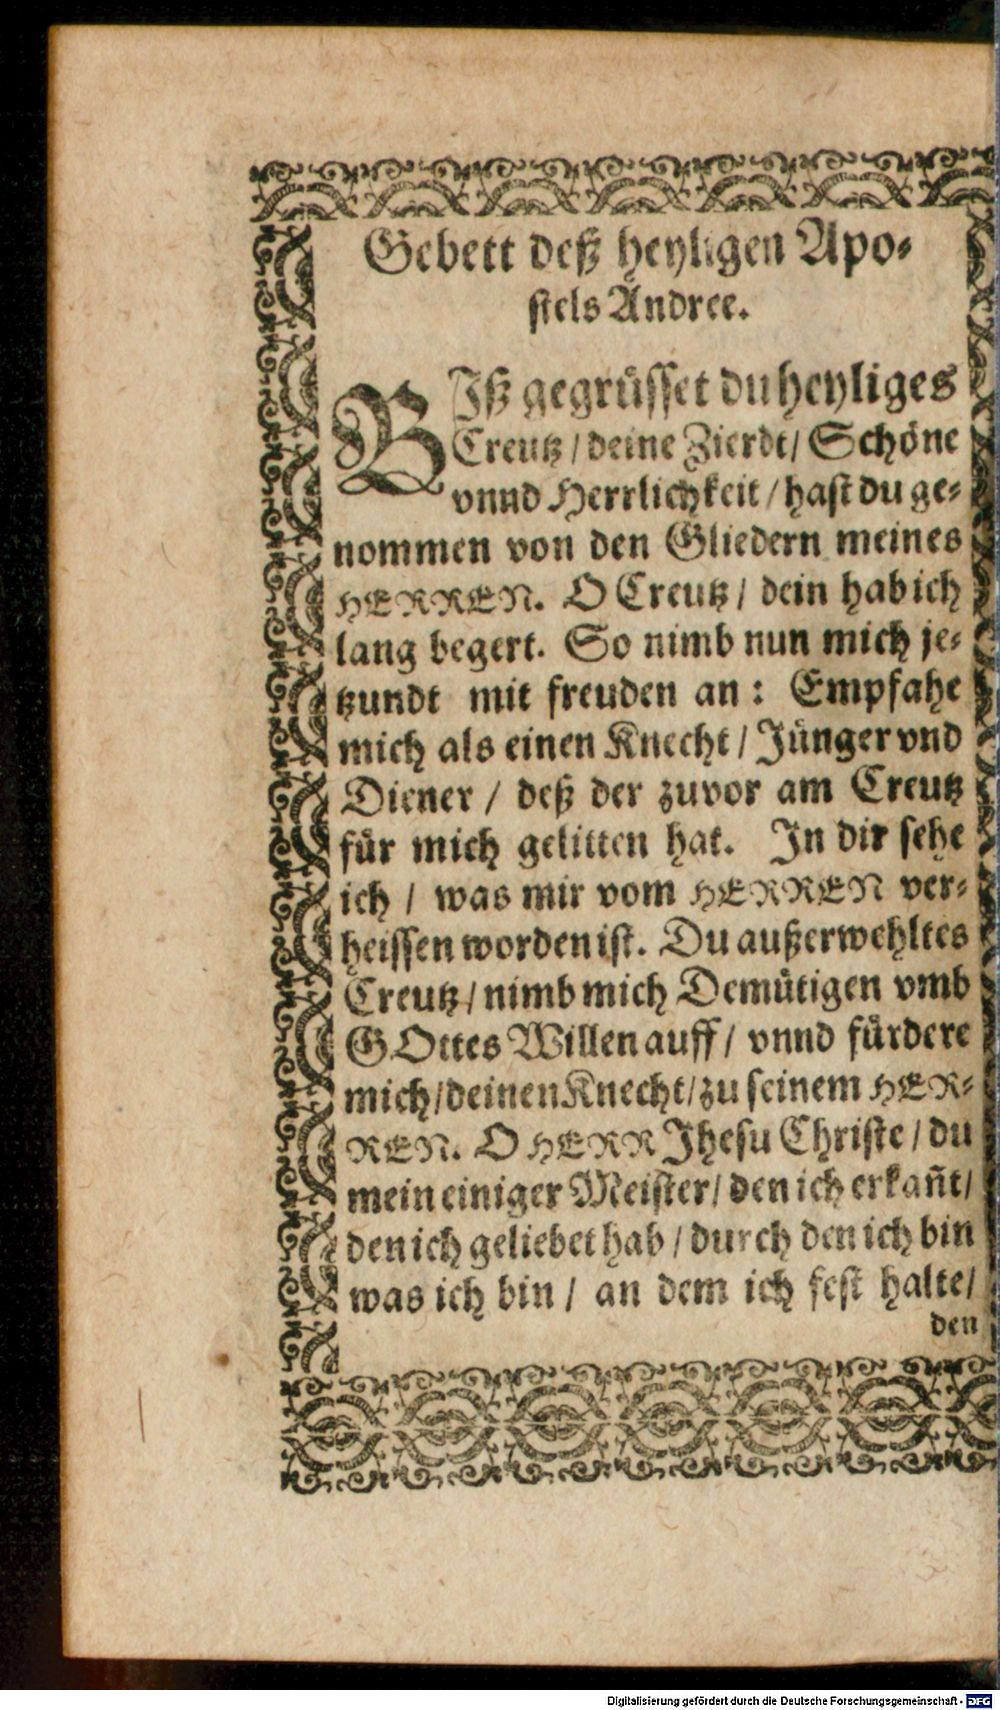 Gebett deß heyligen Apo-
stels Andree.
BIß gegrüsset du heyliges
Creutz / deine Zierdt / Schöne
vnnd Herrlichkeit / hast du ge-
nommen von den Gliedern meines
HERREN. O Creutz / dein hab ich
lang begert. So nimb nun mich je-
tzundt mit freuden an : Empfahe
mich als einen Knecht / Jünger vnd
Diener / deß der zuvor am Creutz
für mich gelitten hat. In dir sehe
ich / was mir vom HERREN ver-
heissen worden ist. Du außerwehltes
Creutz / nimb mich Demütigen vmb
GOttes Willen auff / vnnd fürdere
mich / deinen Knecht / zu seinem HER-
REN. O HERR Jhesu Christe / du
mein einiger Meister / den ich erkañt /
den ich geliebet hab / durch den ich bin
was ich bin / an dem ich fest halte /
den
Digitalisierung gefördert durch die Deutsche Forschungsgemeinschaft - DFG